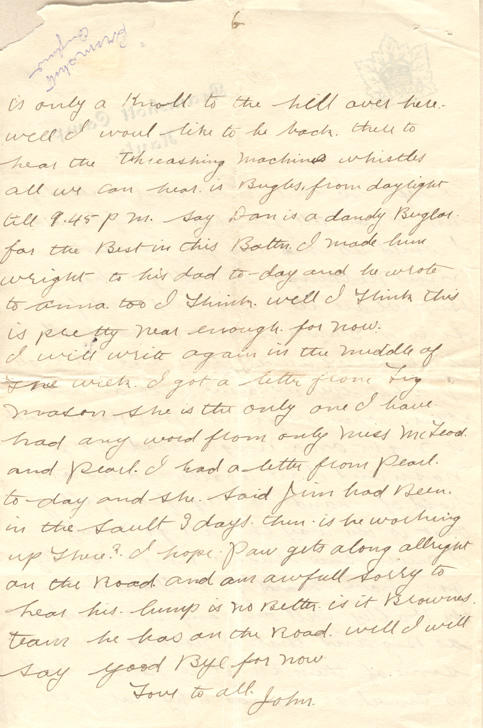 6
Bramshott
England
is only a Knoll to the hill over here.
well I woul like to be back there to
hear the threashing machines whistles
all we can hear is Bugles, from daylight
till 9.45 p m. say Dan is a dandy Buglar
far the Best in this Battn. I made him
wright to his dad to-day and he wrote
to anna too I think. well I think this
is pretty near enough for now.
I will write again in the middle of
the week. I got a letter from
Mason she is the only one I have
had any word from only Miss McLeod
and Pearl. I had a letter from Pearl.
to-day and she said Jim had Been
in the Sault 3 days then. is he working
up there? I hope Paw gets along allright
on the Road and am awfull sorry to
hear his lump is no Better is it Brownes
team he has on the Road. well I will
say good Bye for now
Love to all.
John.